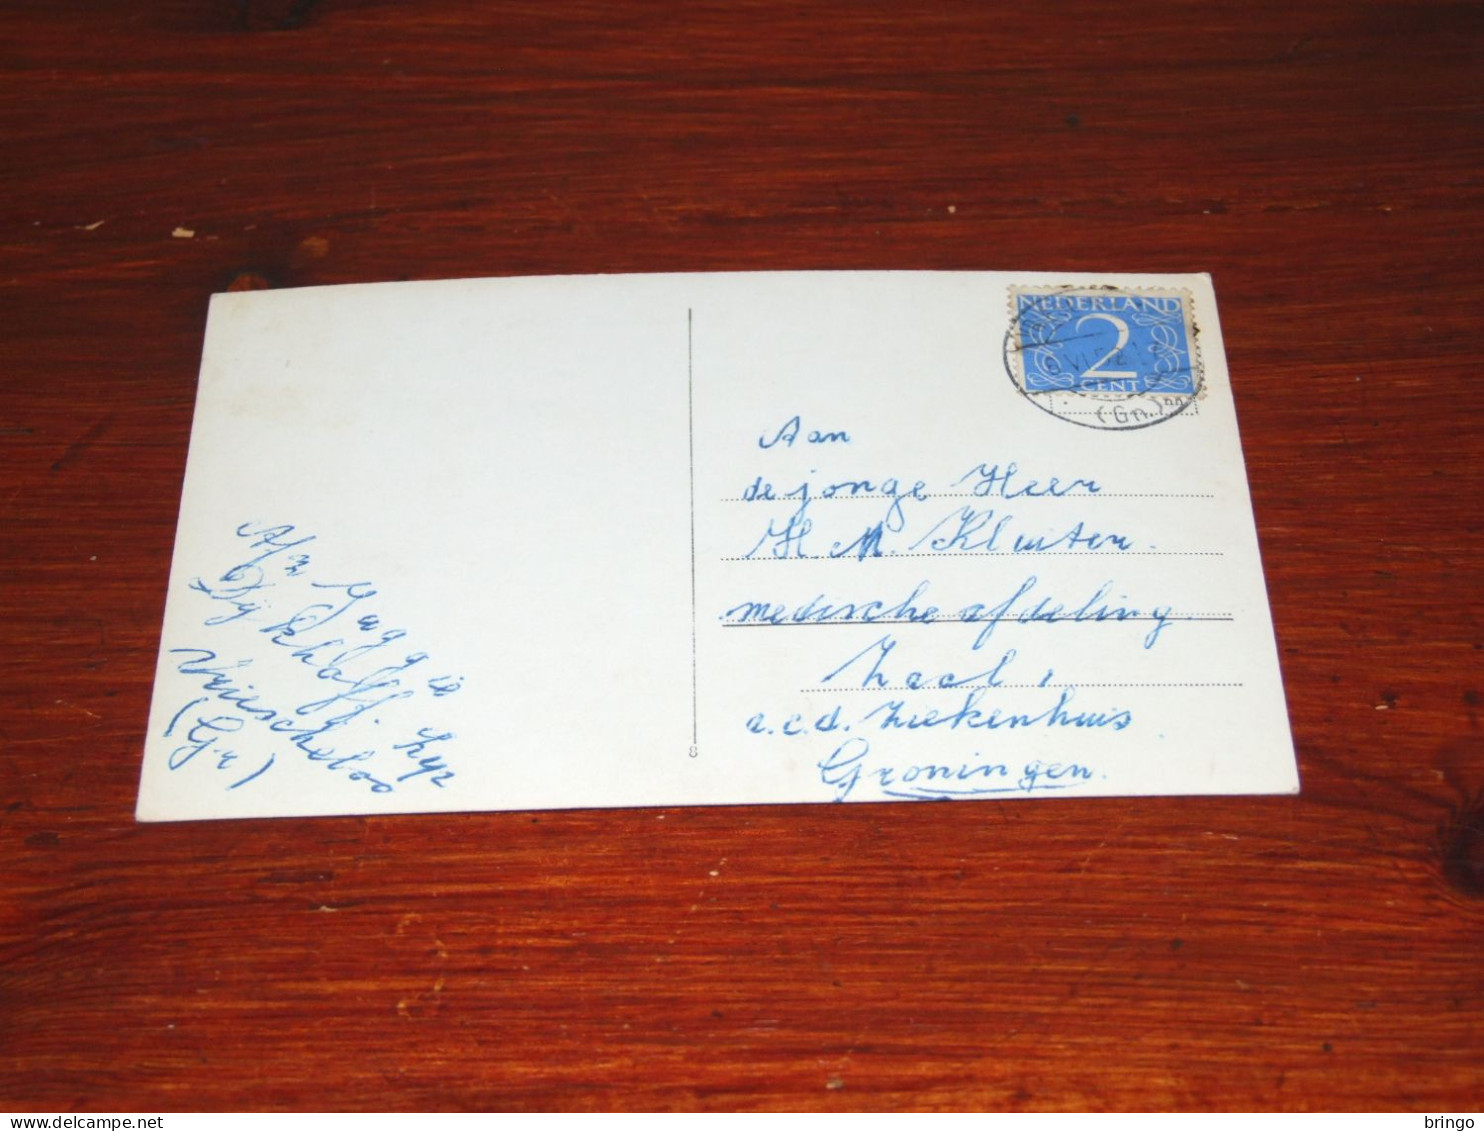 NEDERLAND
2
CENT
(Gn)
Aan
de jonge Heer
H. M. Kluiter.
medische afdeling
Zaal 1
a.c.d. Ziekenhuis
Groningen.
Afz
Dijkhoff.
Vriescheloo
(Gr)
8
bringo